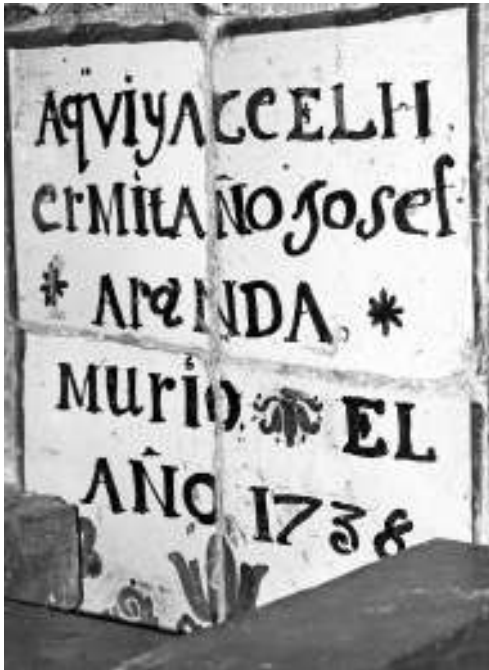 AqviyACCELH
ErMItAÑOJosef
* ArANDA *
Murio EL
AÑO 1738